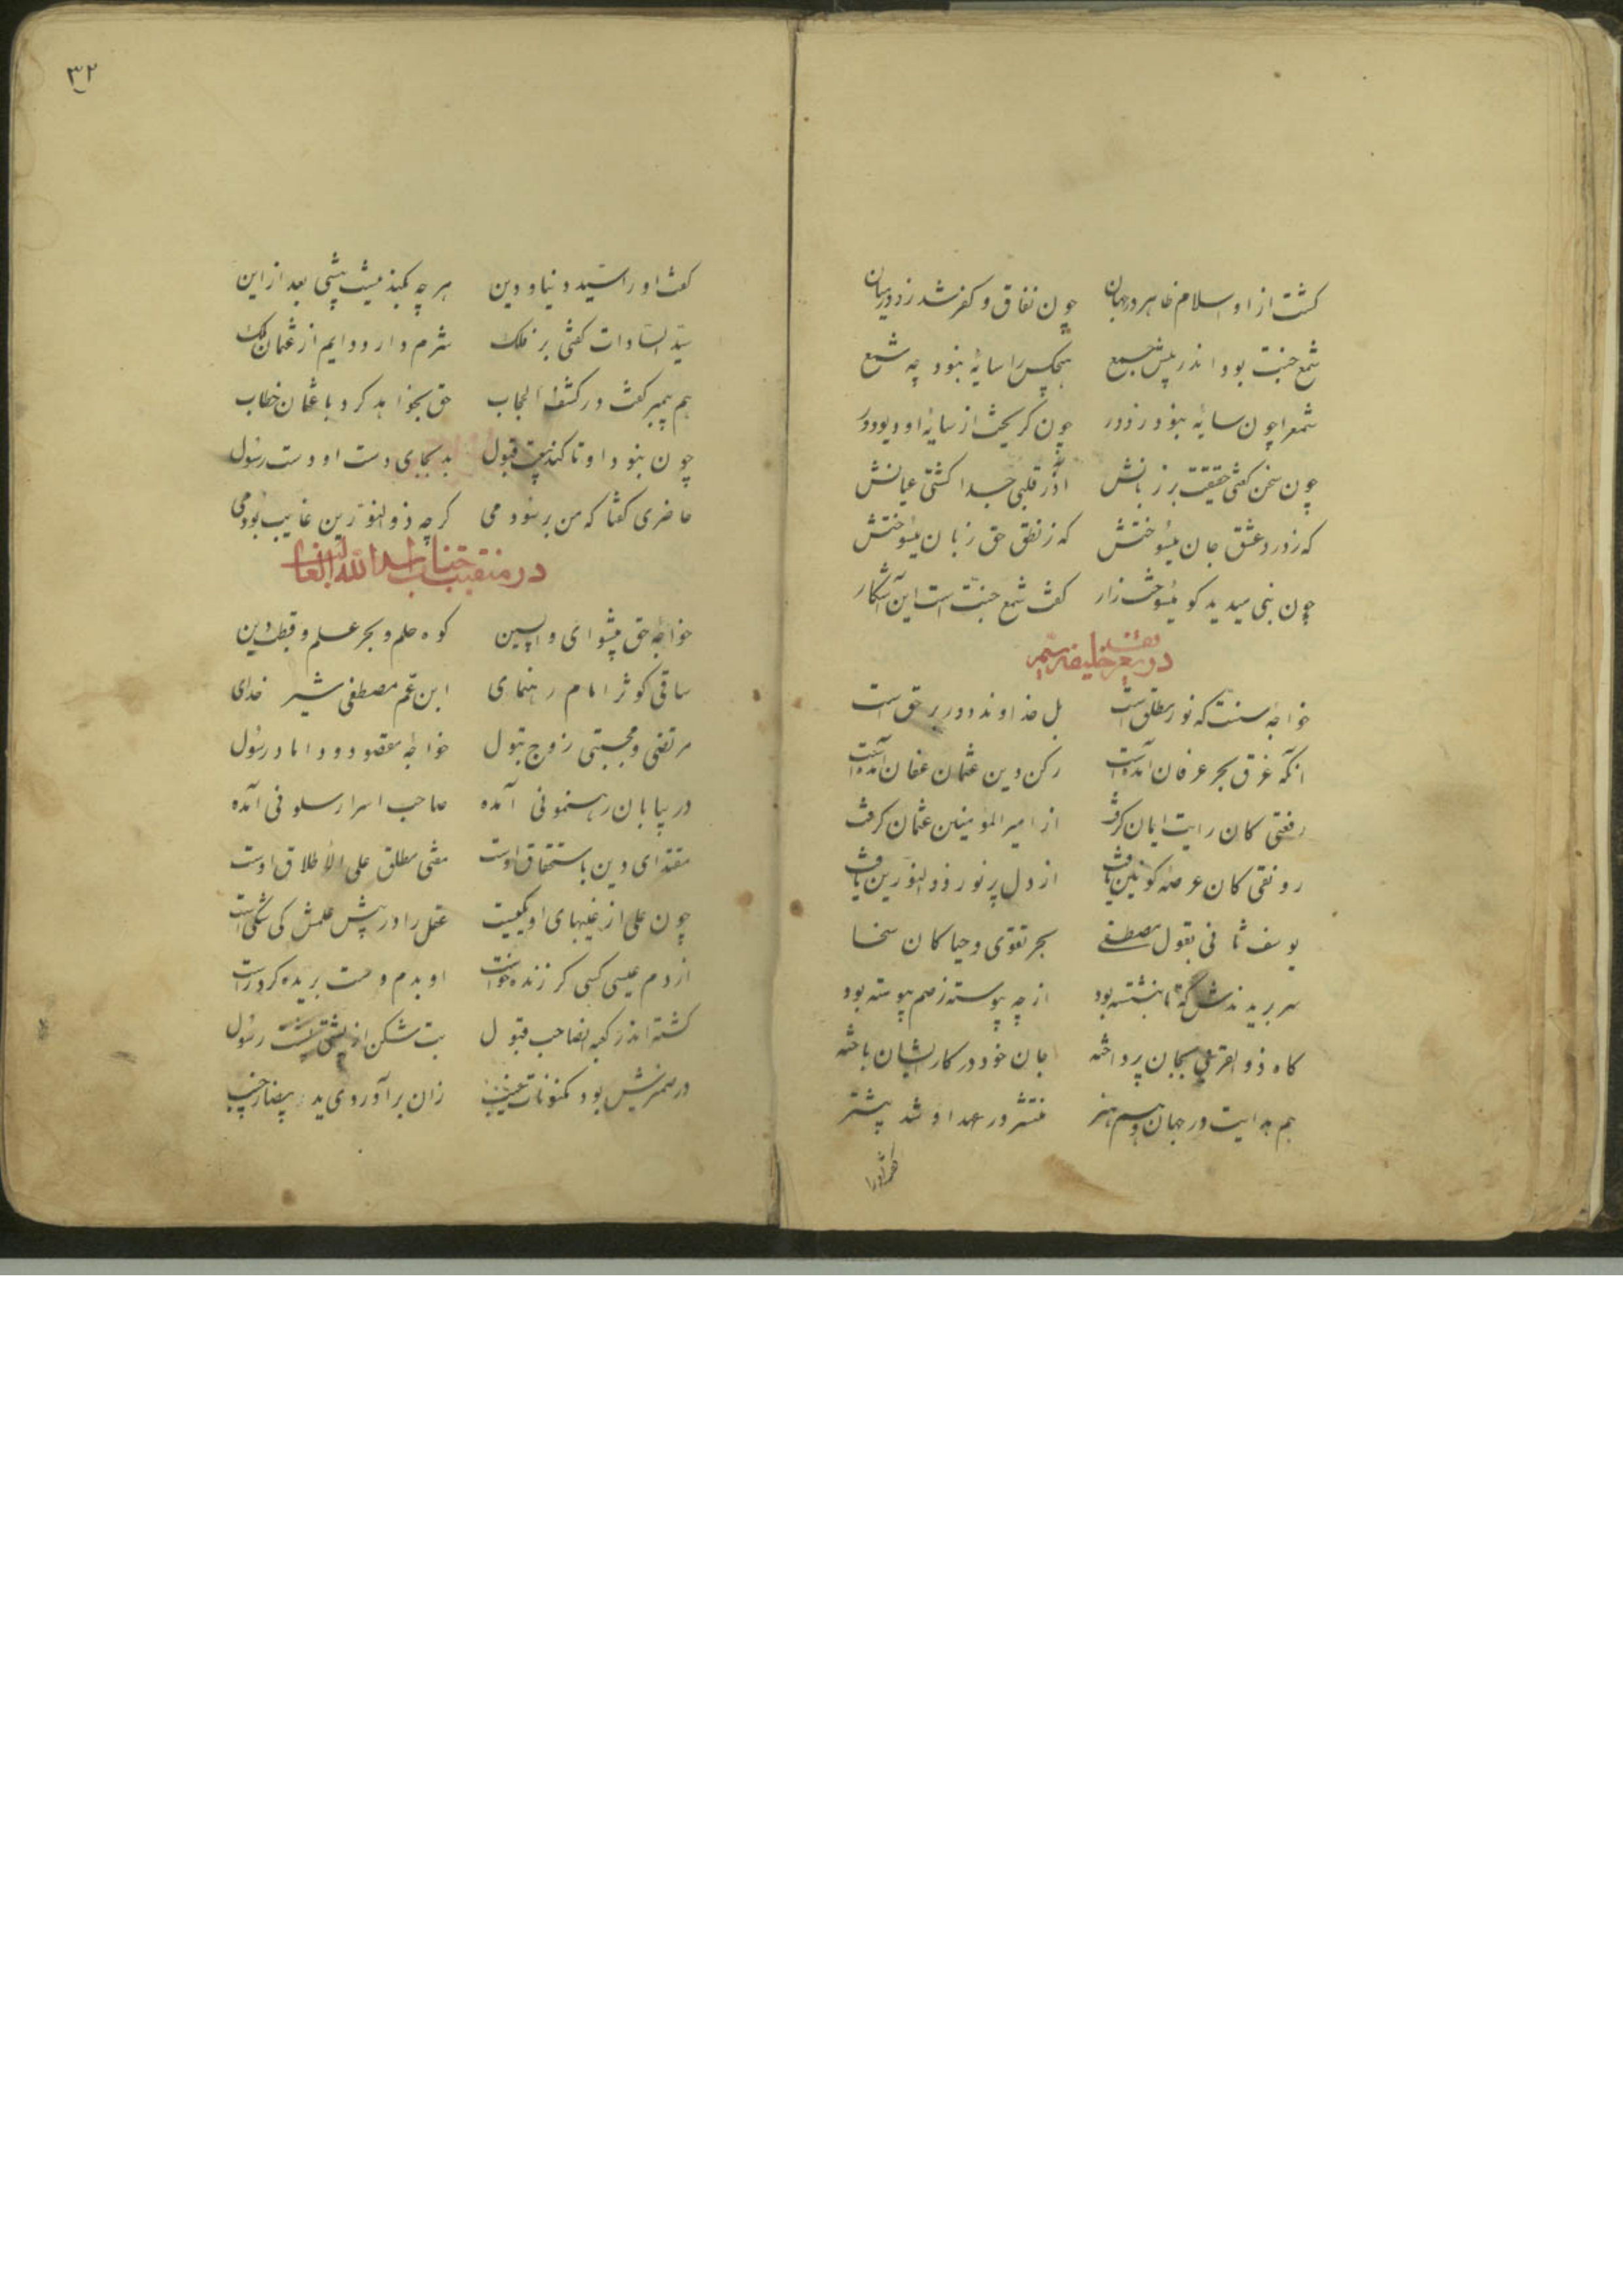 کشت از او اسلام ظاهر در جهان چون نفاق و کفر شد زو در میان
شمع جنت بود اندر پیش جمع هیچکس را سایهٔ نبود چه شمع
شمع را چون سایهٔ نبود ز نور چون کریخت از سایهٔ او دیو دور
چون سخن کفتی حقیقت بر زبانش از قلبی خدا کشتی عیانش
که ز درد عشق جان میسوختش که ز نطق حق زبان میسوختش
چون نبی میدید کو میسوخت زار کفت شمع جنت است این آشکار
در خلیفه سیم
خواجهٔ سنت که نور مطلق است بل خداوند دو نور بر حق است
انکه غرق بحر عرفان آمدست رکن دین عثمان عفان آمدست
رفعتی کان رایت ایمان کرفت از امیر المؤمنین عثمان کرفت
رونقی کان عرصهٔ کونین یافت از دل پر نور ذو النورین یافت
یوسف ثانی بقول مصطفی بحر تقوی و حیا کان سخا
سر بریدندش که تا بنشسته بود از چه پیوسته رحم پیوسته بود
کاه ذو القربی بجان پرداخته جان خود در کار ایشان باخته
هم هدایت در جهان و هم هنر منتشر در عهد او شد پیشتر
۳۲
کفت او را سید دنیا و دین هر چه بکند نیست پیشی بعد از این
سید السادات کفتی بر فلک شرم دارد دایم از عثمان ملک
هم پیمبر کفت در کشف الحجاب حق نخواهد کرد با عثمان خطاب
چون نبود او تا کند بیعت قبول بد بجای دست او دست رسول
حاضری کفتا که من بر بنودمی کر چه ذو النورین غایب بودمی
در منقبت جناب اسد الله الغالب
خواجهٔ حق پیشوای واپسین کوه حلم و بحر علم و قطب دین
ساقی کوثر امام رهنمای ابن عم مصطفی شیر خدای
مرتضی و مجتبی زوج بتول خواجهٔ مقصود و داماد رسول
در بیابان رهنمونی آمده صاحب اسرار سلونی آمده
مقتدای دین باستحقاق اوست مفتی مطلق علی الاطلاق اوست
چون علی از غیبهای او یکیست عقل را در پیش علمش کی شکی است
از دم عیسی کسی کر زنده خواست او بدم دست بریده کرد راست
کشته اندر کعبه انصاحب قبول بت شکن از پشتی رسول
در ضمیرش بود مکنونات غیب زان بر آوردی ید بیضا ز جیب